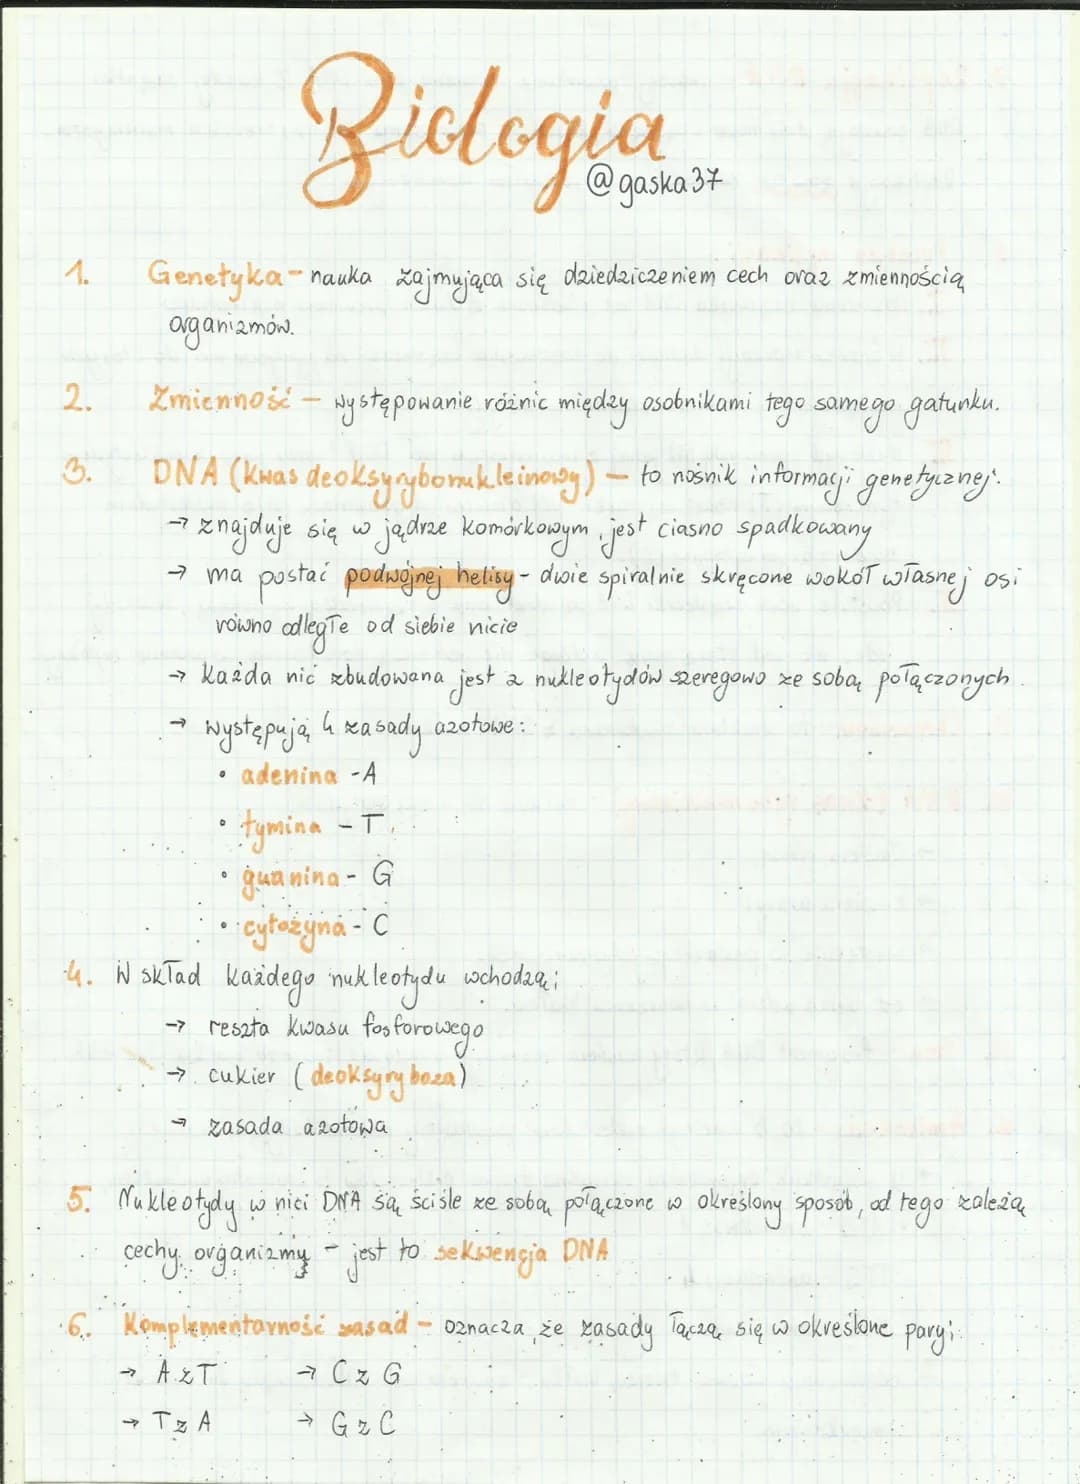 Biologia
@gaska37
1. Genetyka - nauka zajmująca się dziedziczeniem cech oraz zmiennością
organizmów.
2. Zmienność - występowanie różnic między osobnikami tego samego gatunku.
3. DNA (kwas deoksyrybonukleinowy) - to nośnik informacji genetycznej.
→ znajduje się w jądrze komórkowym, jest ciasno spadkowany
→ ma postać podwójnej helisy - dwie spiralnie skręcone wokół własnej osi
równo odległe od siebie nicie
→ każda nić zbudowana jest z nukleotydów szeregowo ze sobą połączonych.
→ występują 4 zasady azotowe:
• adenina - A
• tymina - T
• guanina - G
• cytozyna - C
4. W skład każdego nukleotydu wchodzą:
→ reszta kwasu fosforowego
→ cukier (deoksyryboza)
→ zasada azotowa
5. Nukleotydy w nici DNA są ściśle ze sobą połączone w określony sposób, od tego zależą
cechy organizmy - jest to sekwencja DNA
6. Komplementarność zasad - oznacza, że zasady łączą się w określone pary:
→ A z T → C z G
→ T z A → G z C